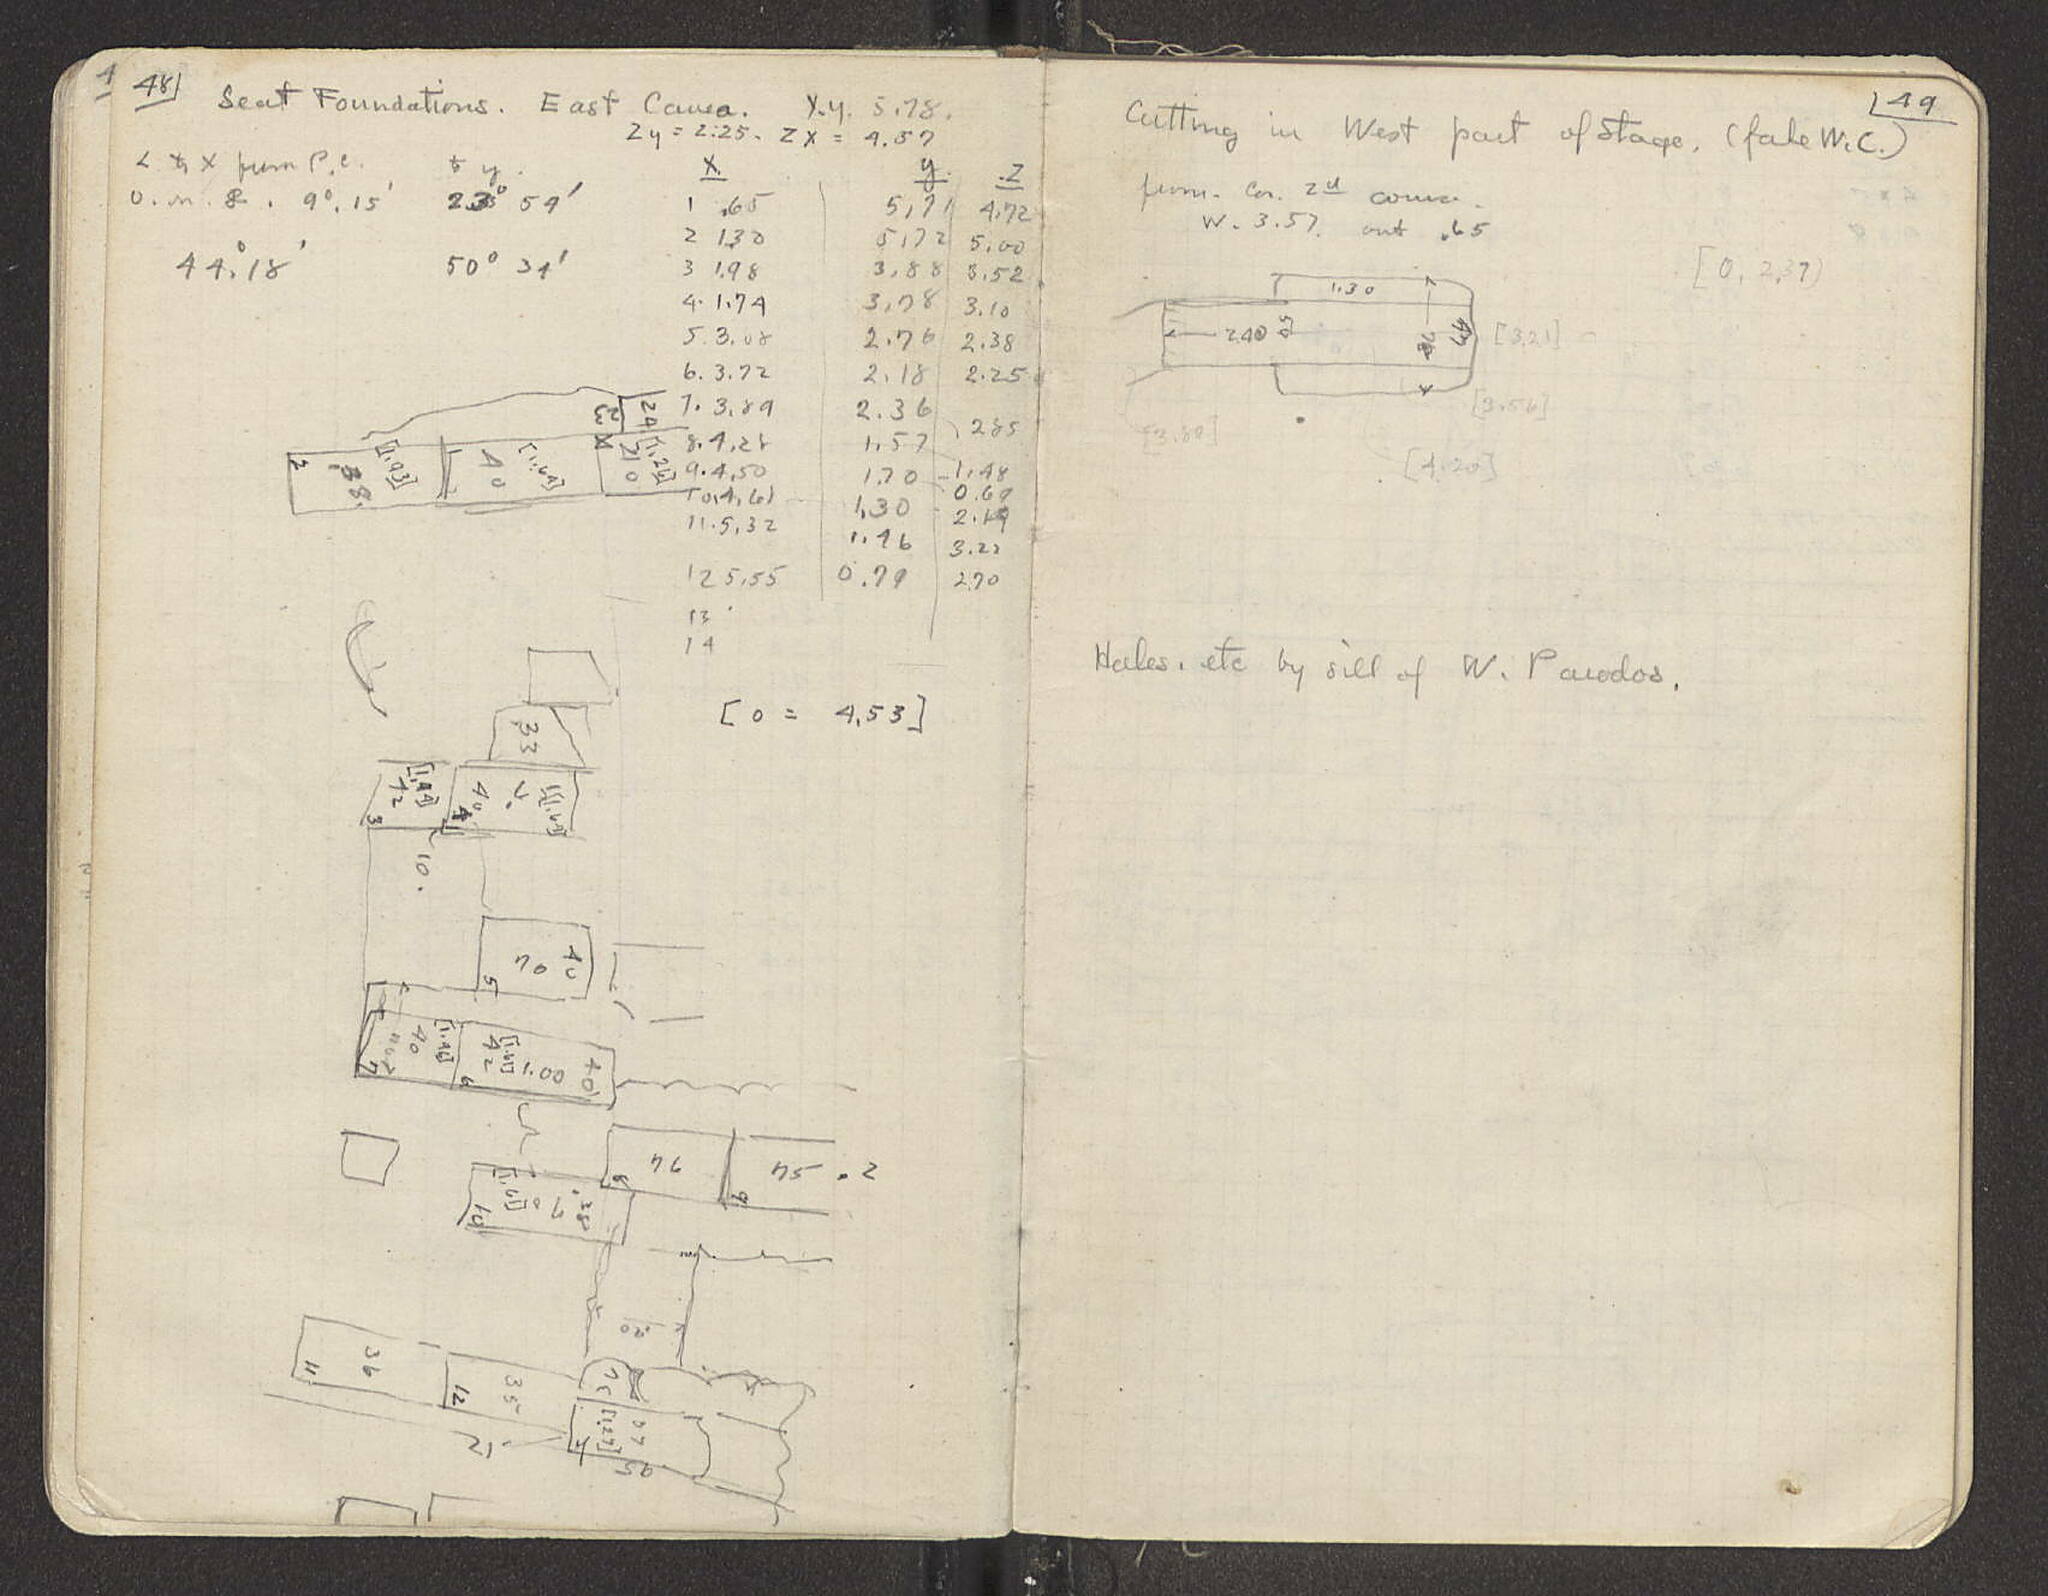 48
Seat Foundations. East Cavea. X.Y. 5.78.
Zy = 2.25. ZX = 4.57
X y. Z
9°.15' 23° 54'
44°.18' 50° 34'
1 .65 5,71 4.72
2 1.30 5,72 5.00
3 1.98 3,88 3.52
4. 1.74 3,78 3.10
5. 3.08 2.76 2.38
6. 3.72 2.18 2.25
7. 3,89 2.36
285
8. 4,28 1.57
9. 4,50 1.70 1.48
10, 4,61 1,30 0.69
11. 5,32 1.46 2.19
3.22
12 5,55 0.79 2.70
13
14
24
23
2 .38. [1.93] 1 40 [1.64] [1.26]
[0 = 4,53]
33
[1,44] 42 3 40 4 [1.64]
10.
40 70 5
40 [1.46] 7 42 1.00 40 6
76 8 75 . 2 9
.38 10
20
36 11
35 12
[1.27]
12
95
49
Cutting in West part of Stage. (fake W.C.)
from. cor. 2d course.
W. 3.57. out .65
[0, 2,37)
1.30
2.40 50 78 47
[3.21]
[3.56]
[3.80]
[4.20]
Holes. etc by sill of W. Parodos.